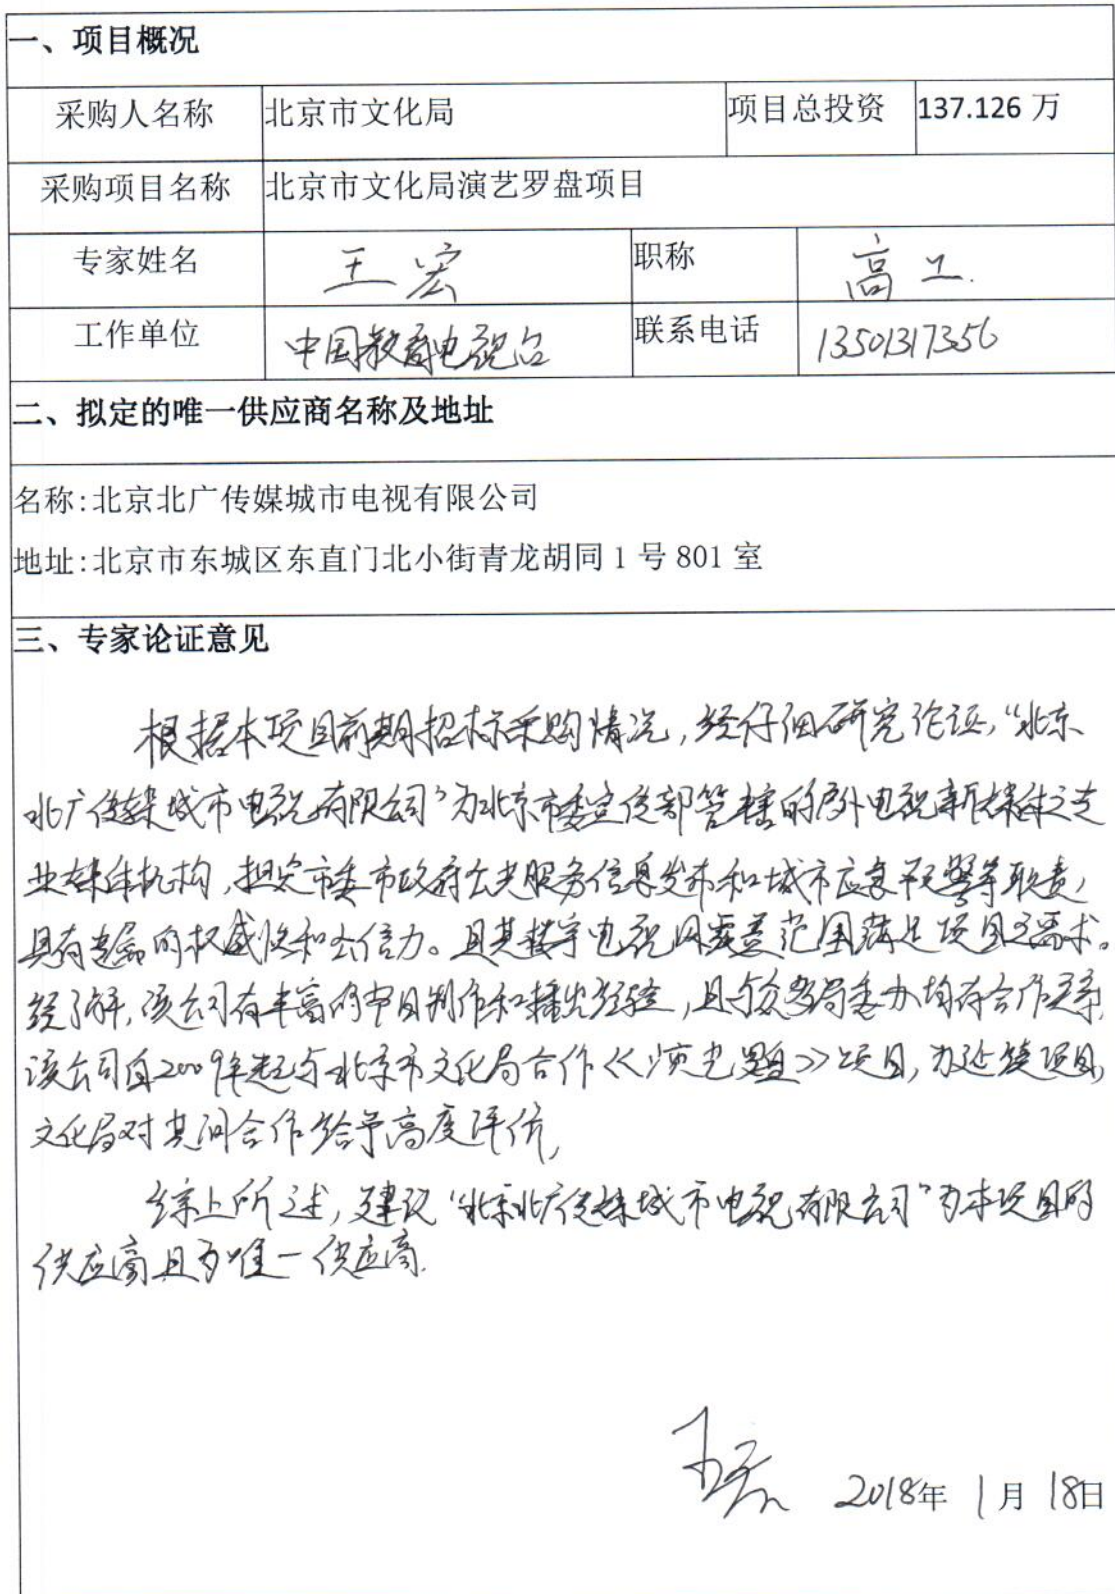 一、项目概况
采购人名称 北京市文化局 项目总投资 137.126 万
采购项目名称 北京市文化局演艺罗盘项目
专家姓名 王宏 职称 高工.
工作单位 中国教育电视台 联系电话 13501317356
二、拟定的唯一供应商名称及地址
名称:北京北广传媒城市电视有限公司
地址:北京市东城区东直门北小街青龙胡同 1 号 801 室
三、专家论证意见
根据本项目前期招标采购情况,经仔细研究论证,“北京
北广传媒城市电视有限公司”为北京市委宣传部管辖的户外电视新媒体之专
业媒体机构,担负市委市政府公共服务信息发布和城市应急预警等职责,
具有的权威性和公信力。且其楼宇电视网覆盖范围满足项目之需求。
经了解,该公司有丰富的节目制作和播出经验,且与众多局委办均有合作关系,
该公司自2009年起与北京市文化局合作《演艺罗盘》项目,为延续项目,
文化局对其间合作给予高度评价,
综上所述,建议“北京北广传媒城市电视有限公司”为本项目的
供应商且为唯一供应商.
王宏 2018年 1月 18日